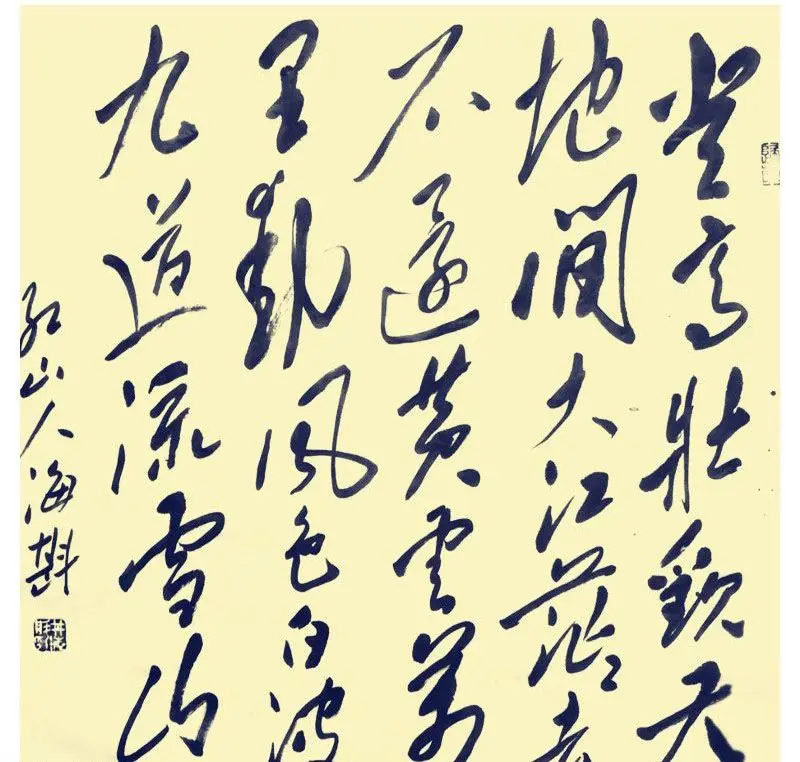 登高壯觀天
地間大江茫々去
不還黄雲萬
里動風色白波
九道流雪山
山人海